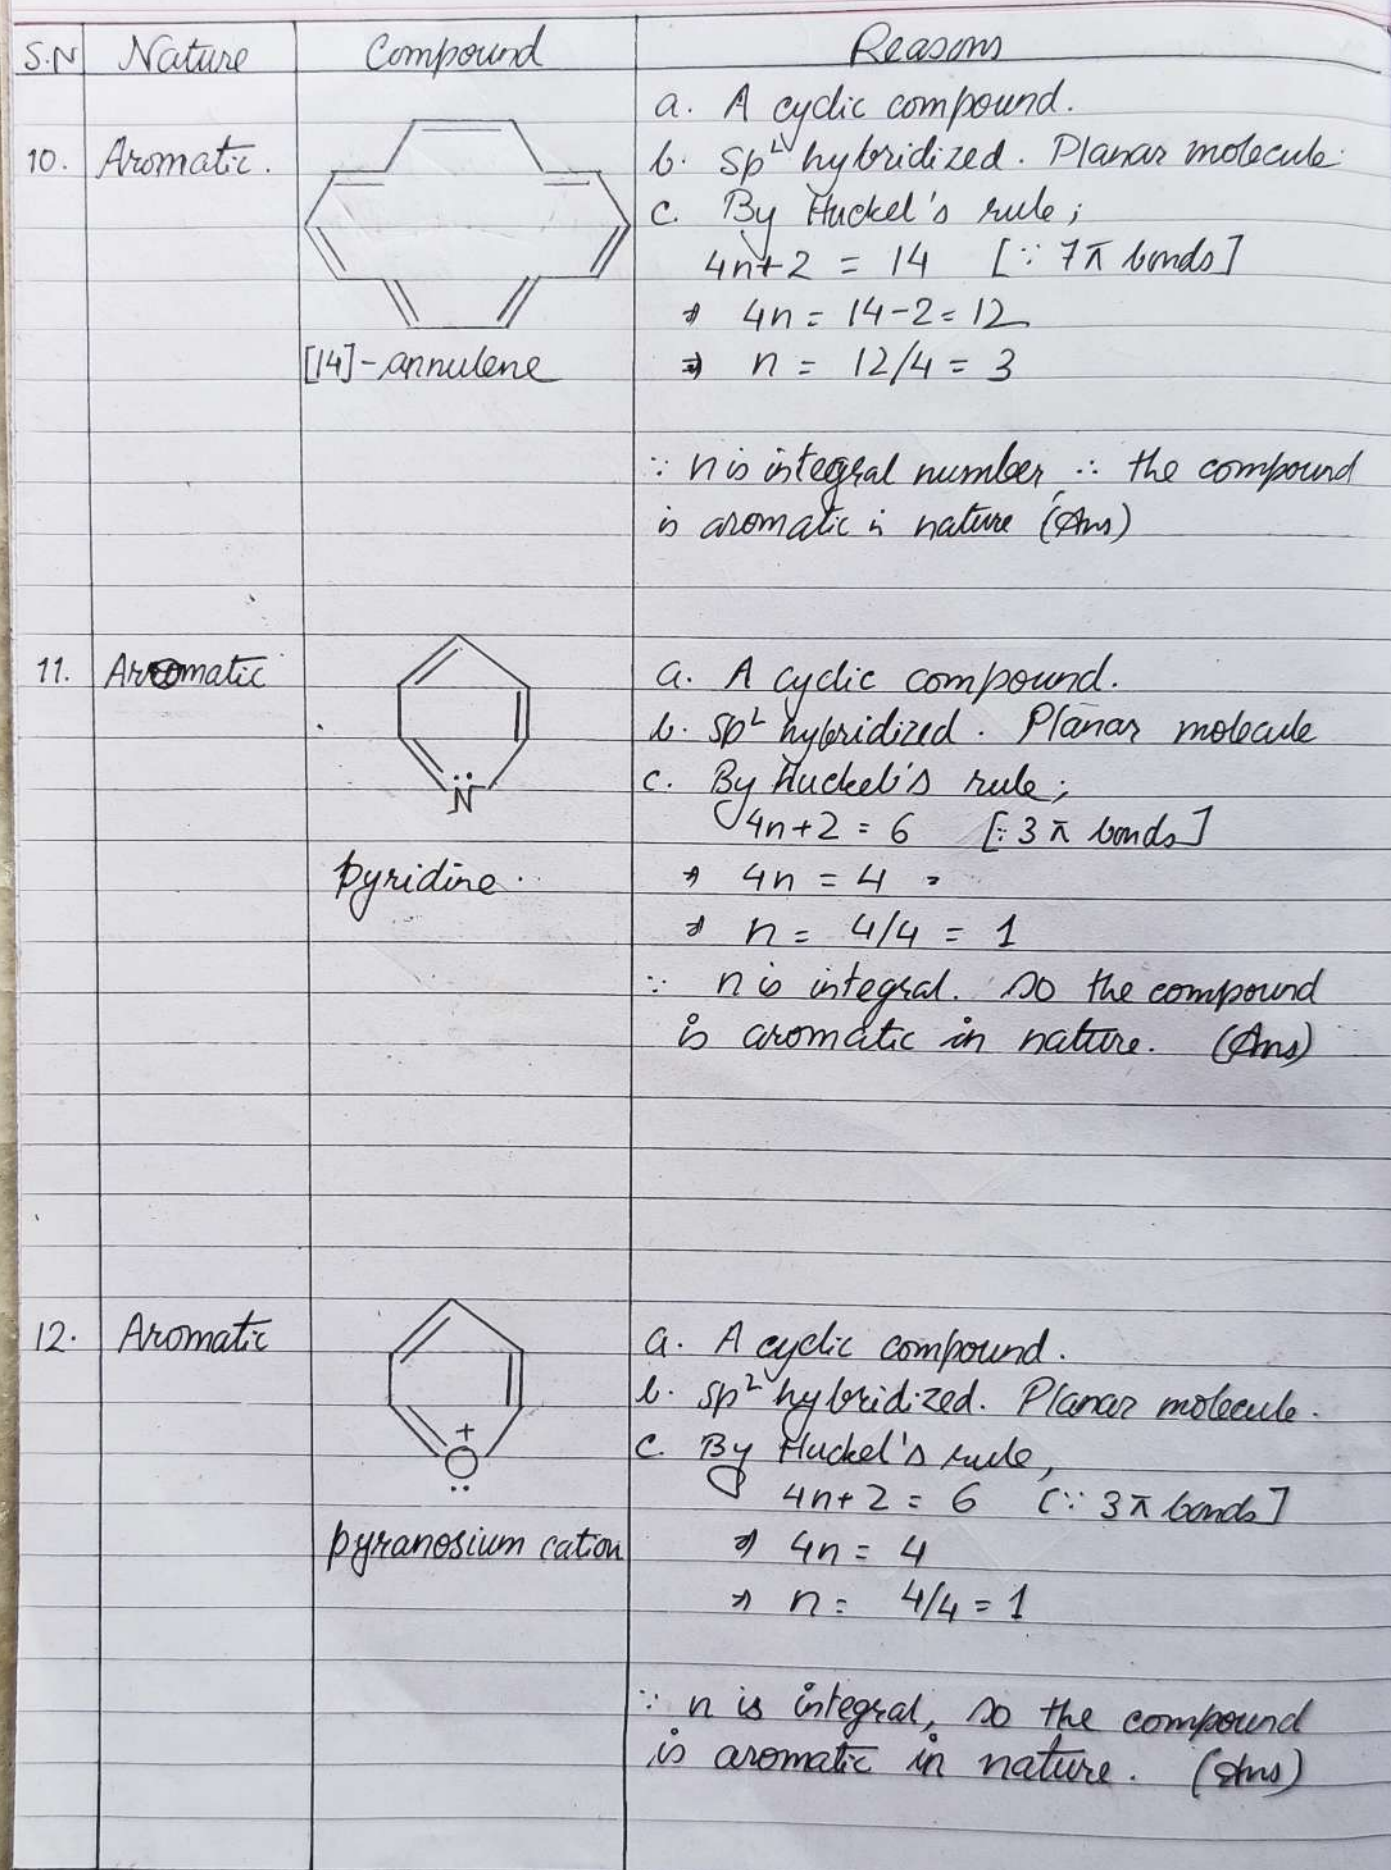 S.N Nature Compound Reasons
a. A cyclic compound.
10. Aromatic. b. sp² hybridized. Planar molecule.
c. By Huckel's rule;
4n+2 = 14 [∵ 7π bonds]
⇒ 4n = 14-2 = 12
[14]-annulene ⇒ n = 12/4 = 3
∵ n is integral number, ∴ the compound
is aromatic in nature (Ans)
11. Aromatic a. A cyclic compound.
b. sp² hybridized. Planar molecule
N̈ c. By Huckel's rule;
4n+2 = 6 [∵ 3π bonds]
pyridine. ⇒ 4n = 4
⇒ n = 4/4 = 1
∵ n is integral. so the compound
is aromatic in nature. (Ans)
12. Aromatic a. A cyclic compound.
b. sp² hybridized. Planar molecule.
+
O c. By Huckel's rule,
4n+2 = 6 [∵ 3π bonds]
pyranosium cation ⇒ 4n = 4
⇒ n = 4/4 = 1
∵ n is integral, so the compound
is aromatic in nature. (Ans)